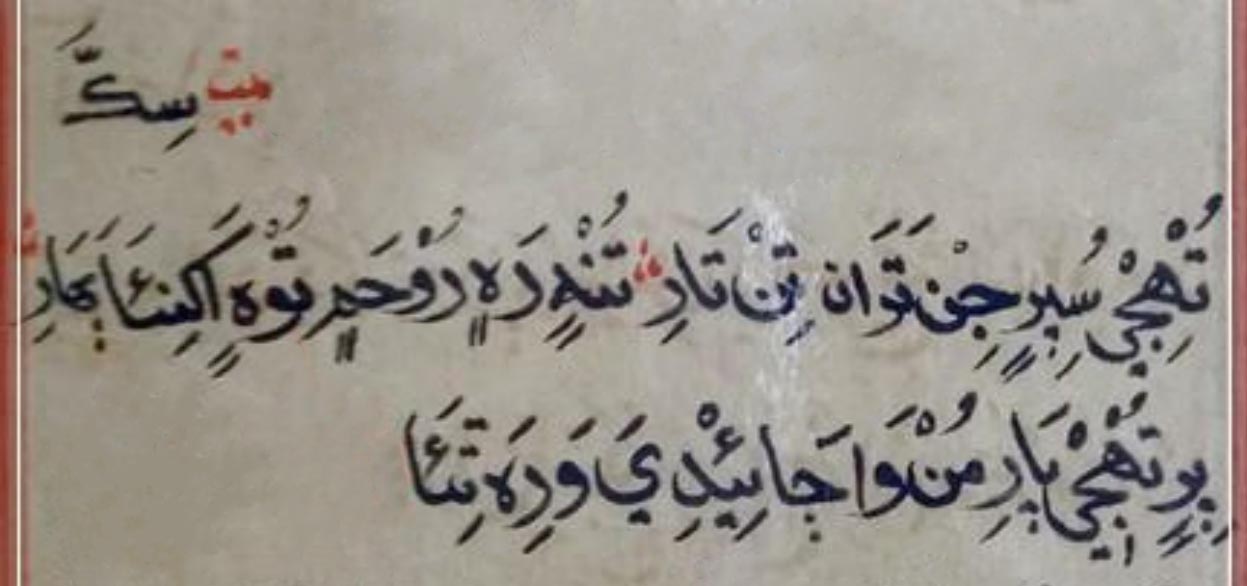 بيت سِكَّ
تُهِجْي سُپِرٍ جِنْ تَوَان تِنْ تَارِ تُنْهٍ رَهٍ رُوْحَدٍ تُوْهٍ اَكِنِئَا بَهَارِ
پِرٍ تُهْجْي پَارِ مُنْ وَاجَائِيْدِيَ وَرِهَ تِئَا